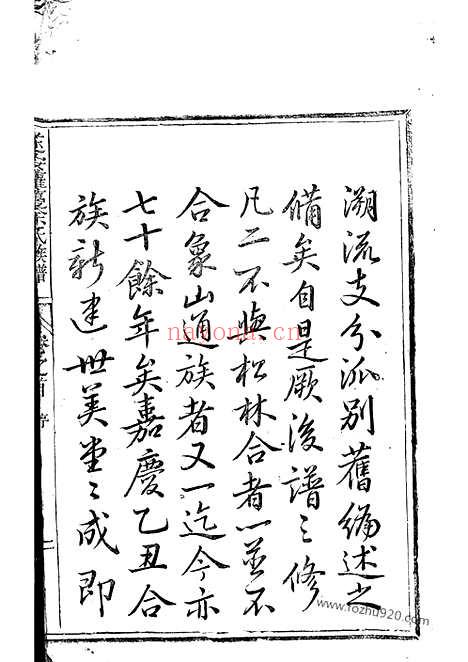 溯流支分派別舊編述之
備矣自是厥後譜之修
凡二不與松林合者一並不
合象山通族者又一迄今亦
七十餘年矣嘉慶乙丑合
族新建世美堂〻成即
氏族譜
卷之首 序
natona.cn
www.fozhu920.com